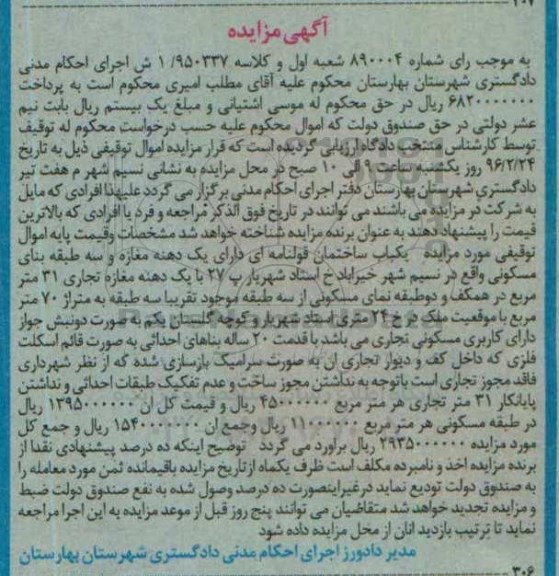 آگهی مزایده
به موجب رای شماره ۸۹۰۰۰۴ شعبه اول و کلاسه ۹۵۰۳۳۷/ ۱ ش اجرای احکام مدنی
دادگستری شهرستان بهارستان محکوم علیه آقای مطلب امیری محکوم است به پرداخت
۶۸۲۰۰۰۰۰۰۰ ریال در حق محکوم له موسی اشتیانی و مبلغ یک بیستم ریال بابت نیم
عشر دولتی در حق صندوق دولت که اموال محکوم علیه حسب درخواست محکوم له توقیف
توسط کارشناس منتخب دادگاه ارزیابی گردیده است که قرار مزایده اموال توقیفی ذیل به تاریخ
۹۶/۲/۲۴ روز یکشنبه ساعت ۹ الی ۱۰ صبح در محل مزایده به نشانی نسیم شهر م هفت تیر
دادگستری شهرستان بهارستان دفتر اجرای احکام مدنی برگزار می گردد علیهذا افرادی که مایل
به شرکت در مزایده می باشند می توانند در تاریخ فوق الذکر مراجعه و فرد یا افرادی که بالاترین
قیمت را پیشنهاد دهند به عنوان برنده مزایده شناخته خواهد شد مشخصات وقیمت پایه اموال
توقیفی مورد مزایده یکباب ساختمان قولنامه ای دارای یک دهنه مغازه و سه طبقه بنای
مسکونی واقع در نسیم شهر خیراباد خ استاد شهریار پ ۲۷ با یک دهنه مغازه تجاری ۳۱ متر
مربع در همکف و دوطبفه نمای مسکونی از سه طبقه موجود تقریبا سه طبقه به متراژ ۷۰ متر
مربع با موقعیت ملک در خ ۲۴ متری استاد شهریار و کوچه گلستان یکم به صورت دونبش جواز
دارای کاربری مسکونی تجاری می باشد با قدمت ۲۰ ساله بناهای احداثی به صورت قائم اسکلت
فلزی که داخل کف و دیوار تجاری ان به صورت سرامیک بازسازی شده که از نظر شهرداری
فاقد مجوز تجاری است باتوجه به نداشتن مجوز ساخت و عدم تفکیک طبقات احداثی و نداشتن
پایانکار ۳۱ متر تجاری هر متر مربع ۴۵۰۰۰۰۰۰ ریال و قیمت کل ان ۱۳۹۵۰۰۰۰۰۰ ریال
در طبقه مسکونی هر متر مربع ۱۱۰۰۰۰۰۰ ریال وجمع ان ۱۵۴۰۰۰۰۰۰۰ ریال و جمع کل
مورد مزایده ۲۹۳۵۰۰۰۰۰۰ ریال براورد می گردد توضیح اینکه ده درصد پیشنهادی نقدا از
برنده مزایده اخذ و نامبرده مکلف است ظرف یکماه ازتاریخ مزایده باقیمانده ثمن مورد معامله را
به صندوق دولت تودیع نماید درغیراینصورت ده درصد وصول شده به نفع صندوق دولت ضبط
و مزایده تجدید خواهد شد متقاضیان می توانند پنج روز قبل از موعد مزایده به این اجرا مراجعه
نماید تا ترتیب بازدید انان از محل مزایده داده شود
مدیر دادورز اجرای احکام مدنی دادگستری شهرستان بهارستان
۳۰۶